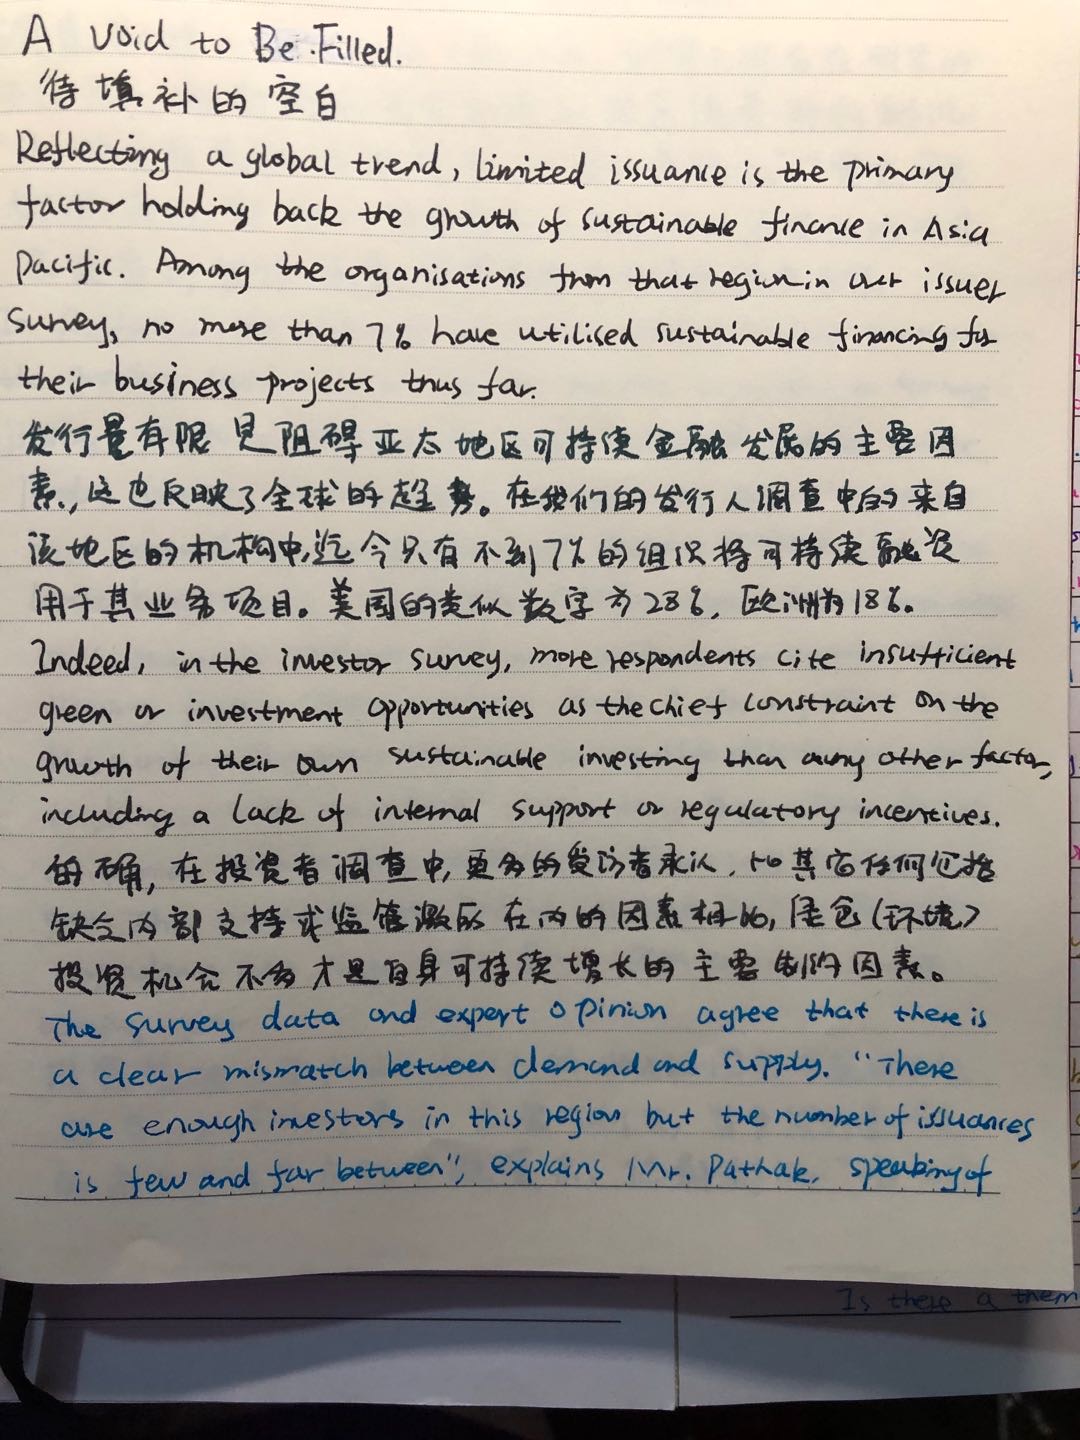 A void to Be Filled.
待填补的空白
Reflecting a global trend, limited issuance is the primary
factor holding back the growth of sustainable finance in Asia
Pacific. Among the organisations from that region in our issuer
Survey, no more than 7% have utilised sustainable financing for
their business projects thus far.
发行量有限是阻碍亚太地区可持续金融发展的主要因
素，这也反映了全球的趋势。在我们的发行人调查中的来自
该地区的机构中，迄今只有不到7%的组织将可持续融资
用于其业务项目。美国的类似数字为28%，欧洲为18%。
Indeed, in the investor survey, more respondents cite insufficient
green or investment opportunities as the chief constraint on the
growth of their own sustainable investing than any other factor,
including a lack of internal support or regulatory incentives.
的确，在投资者调查中，更多的受访者承认，和其它任何包括
缺乏内部支持或监管激励在内的因素相比，绿色（环境）
投资机会不多才是自身可持续增长的主要制约因素。
The survey data and expert opinion agree that there is
a clear mismatch between demand and supply. "There
are enough investors in this region but the number of issuances
is few and far between", explains Mr. Pathak, speaking of
Is there a them